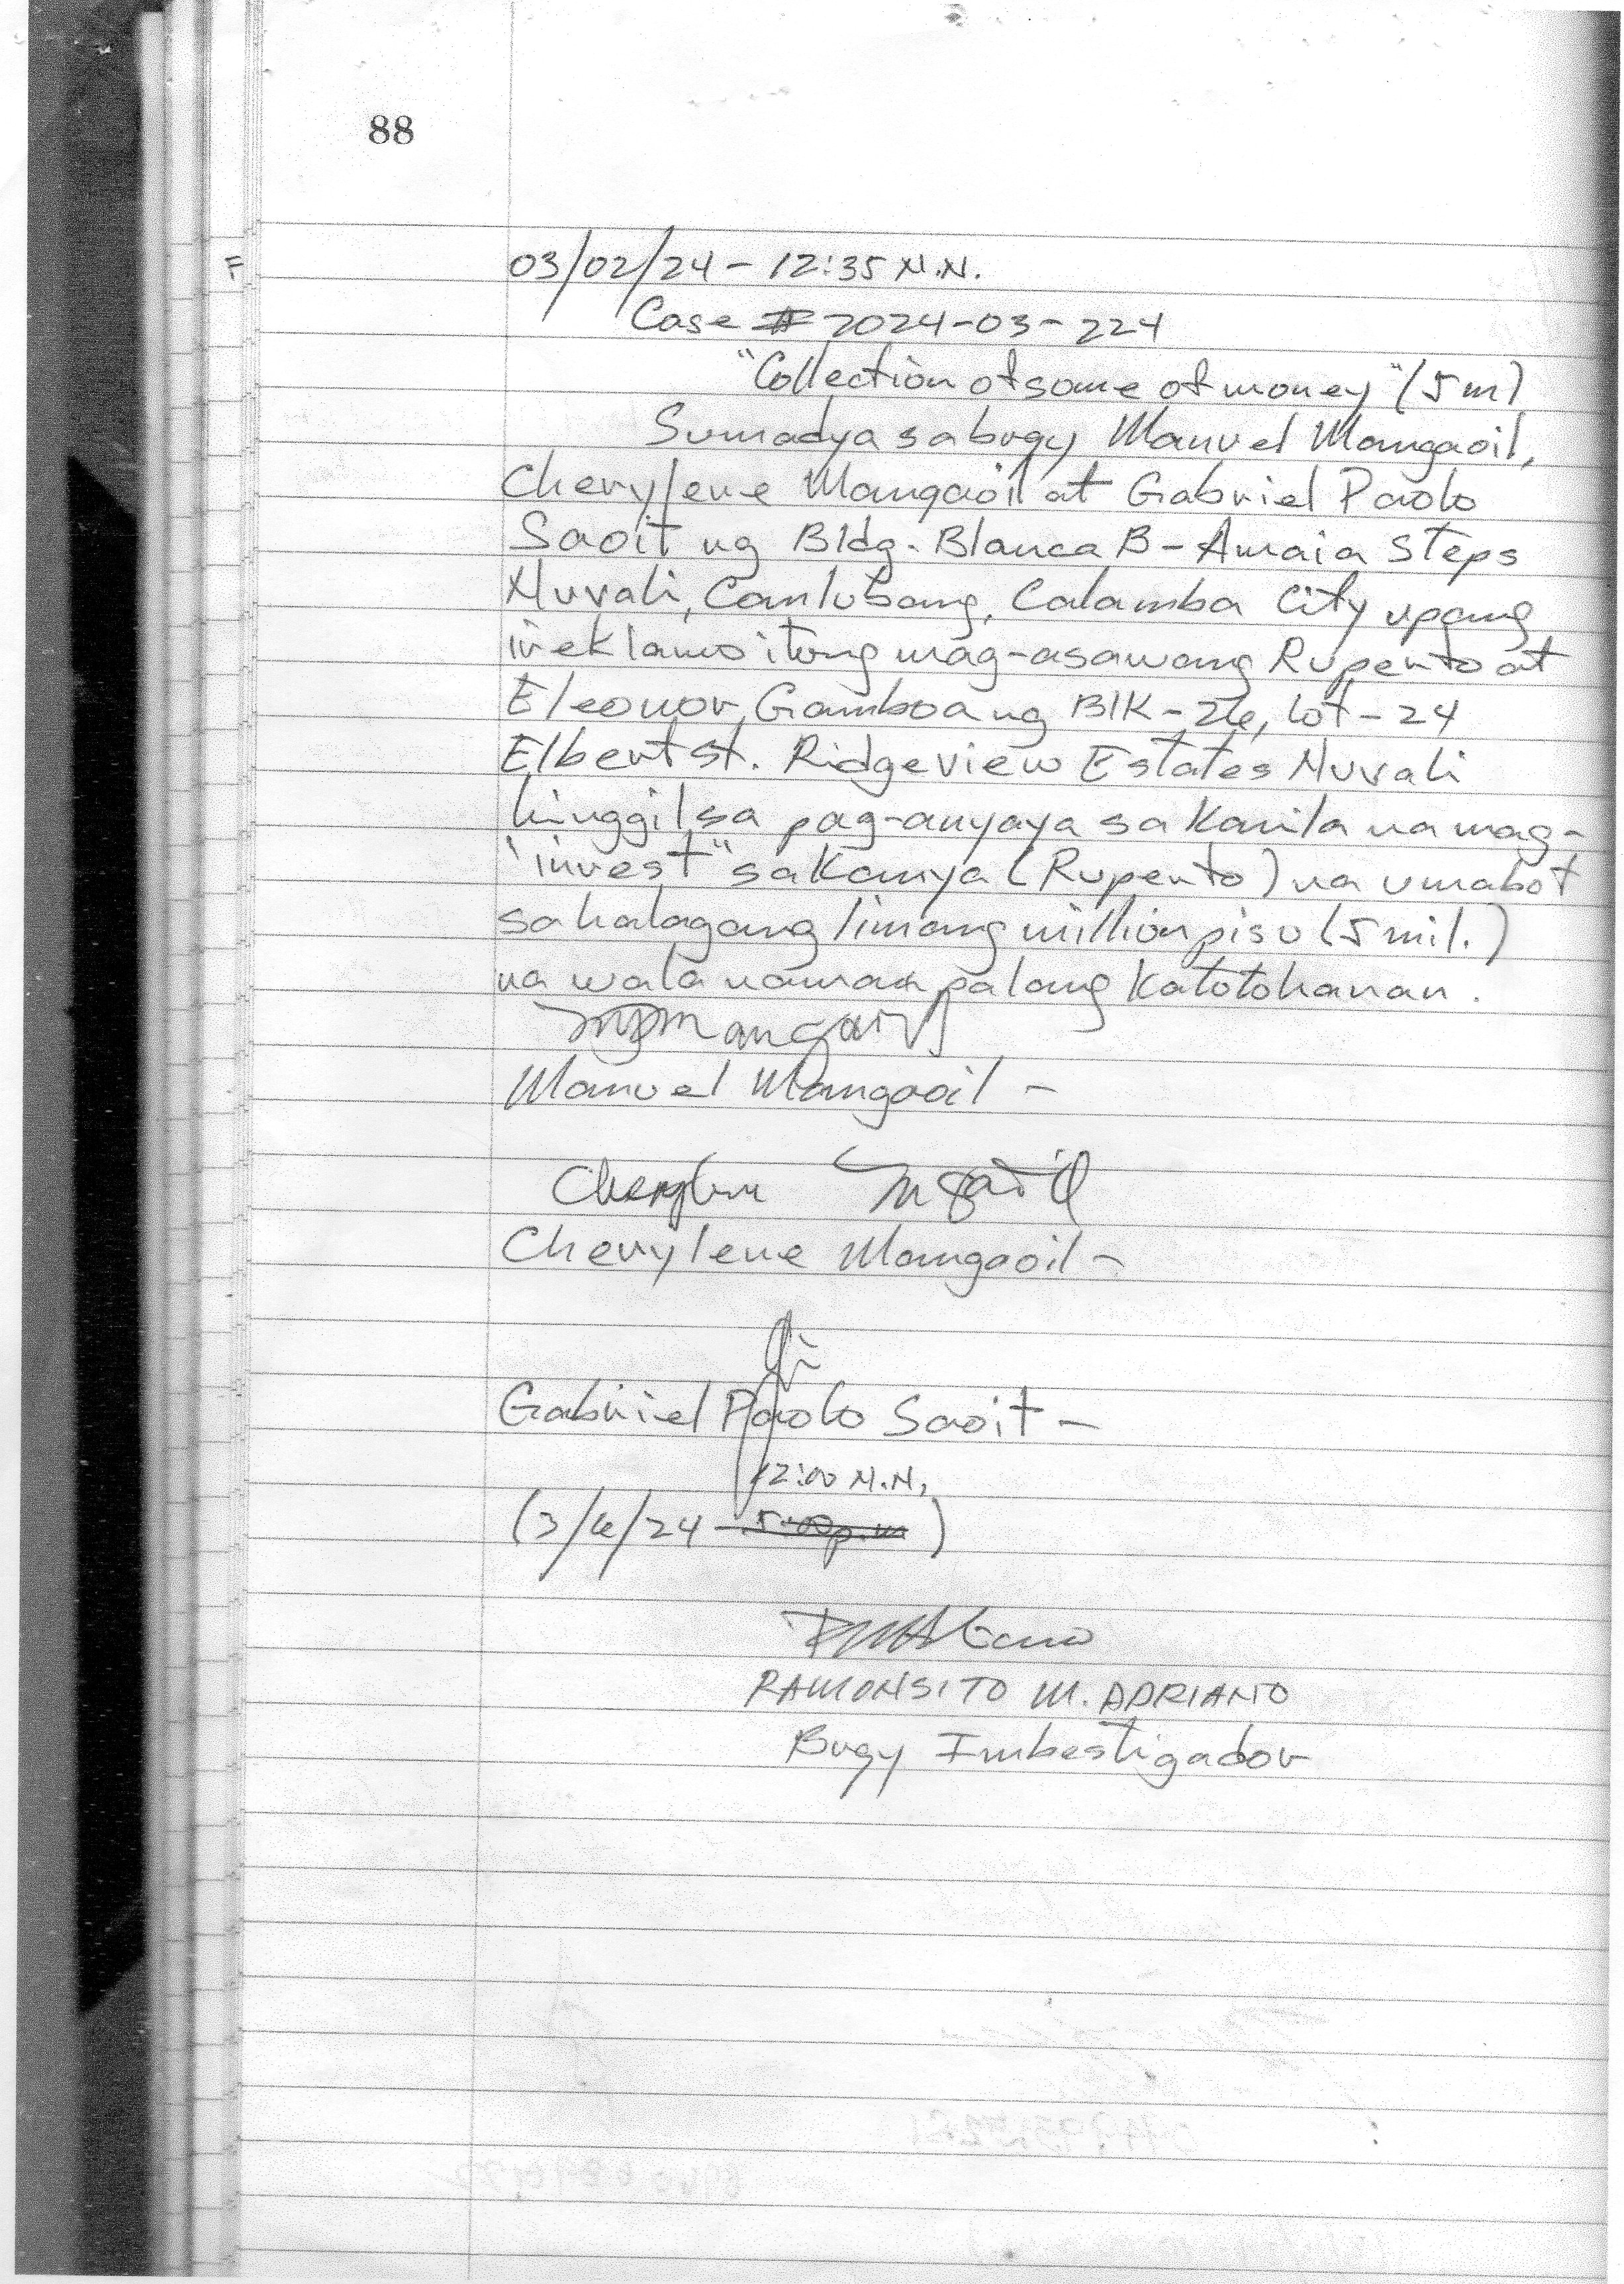 88
F
03/02/24 - 12:35 N.N.
Case # 2024-03-224
"Collection of some of money" (5m)
Sumadya sa brgy Manuel Mangaoil,
Cherylene Mangaoil at Gabriel Paolo
Saoit ng Bldg. Blanca B - Amaia Steps
Nuvali, Canlubang, Calamba City upang
ireklamo itong mag-asawang Rupento at
Eleonor Gamboa ng Blk-26, lot-24
Elbert st. Ridgeview Estates Nuvali
hinggil sa pag-anyaya sa kanila na mag-
"invest" sa kanya (Rupento) na umabot
sa halagang limang million piso (5 mil.)
na wala naman palang katotohanan.
Manuel Mangaoil -
Cherylene Mangaoil -
Gabriel Paolo Saoit -
12:00 N.N.
(3/6/24 - 5:00 p.m)
RAMONSITO M. ADRIANO
Brgy Imbestigador